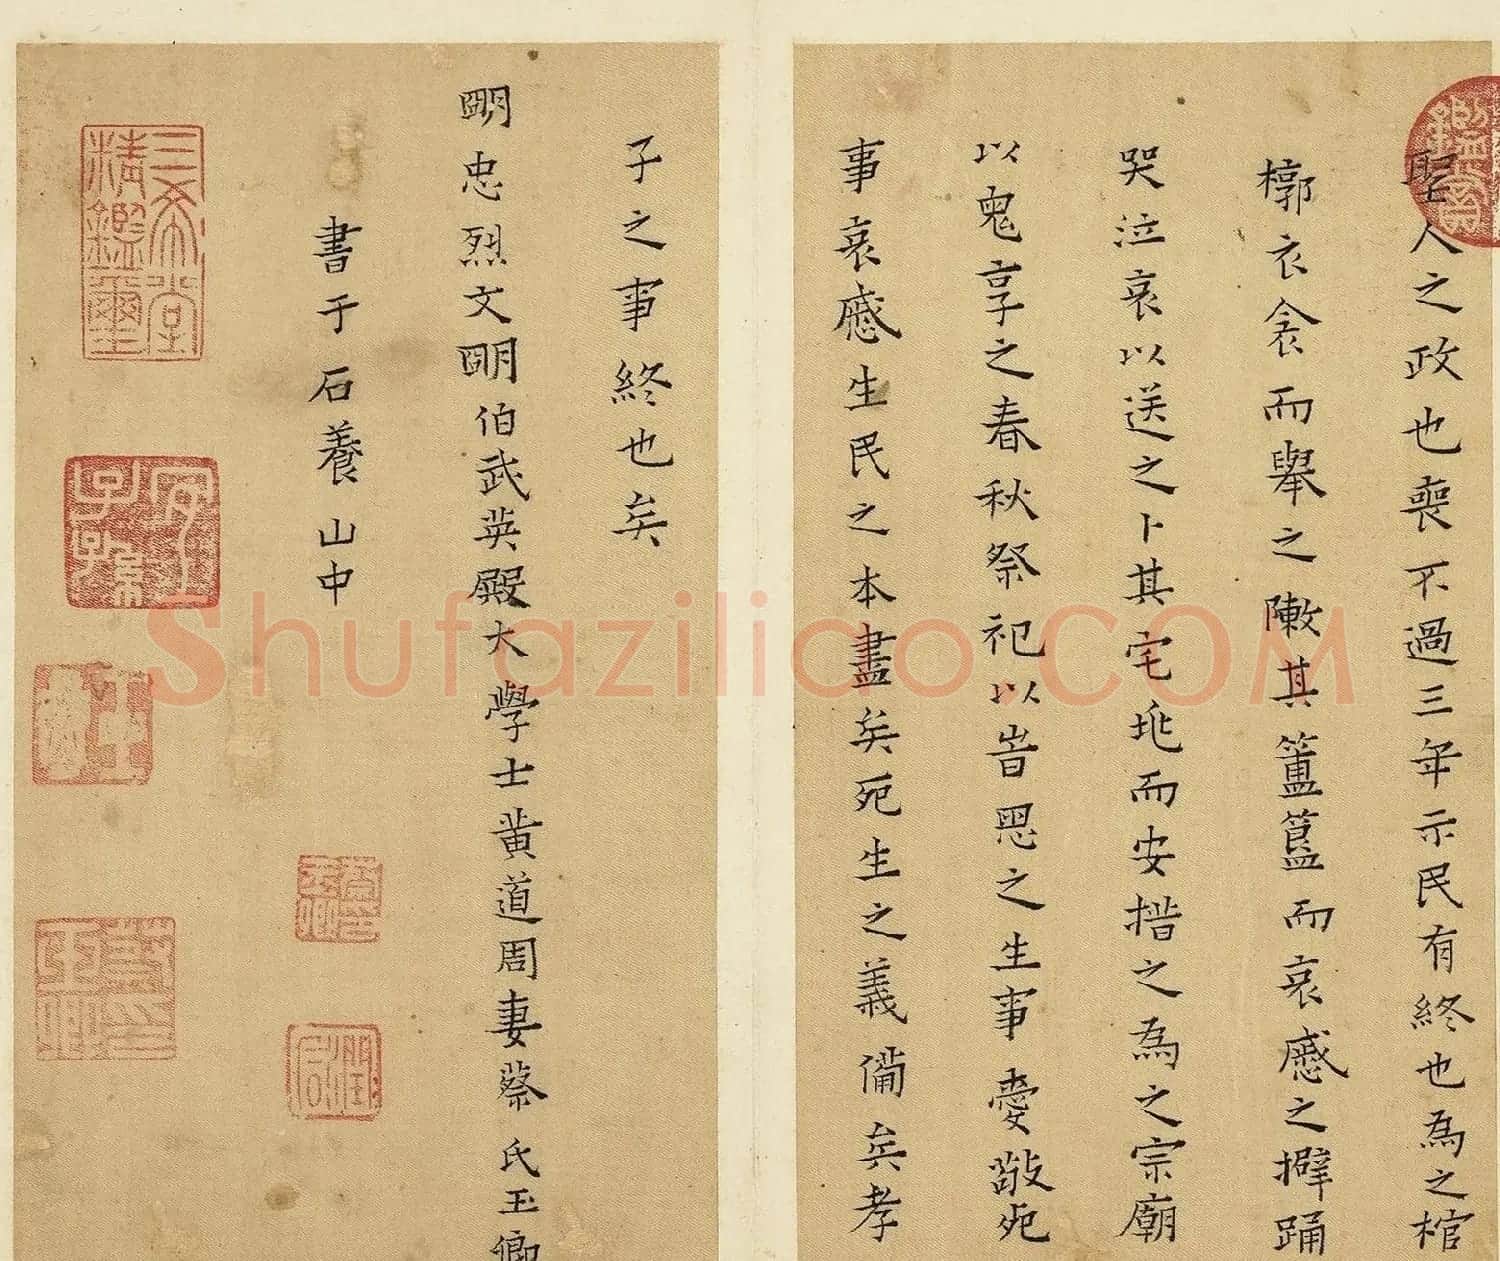 聖人之政也喪不過三年示民有終也為之棺
槨衣衾而舉之陳其簠簋而哀慼之擗踊
哭泣哀以送之卜其宅兆而安措之為之宗廟
以鬼享之春秋祭祀以旹思之生事愛敬死
事哀慼生民之本盡矣死生之義備矣孝
子之事終也矣
朙忠烈文朙伯武英殿大學士黃道周妻蔡氏玉卿
書于石養山中
三希堂精鑑璽
shufaziliao.COM